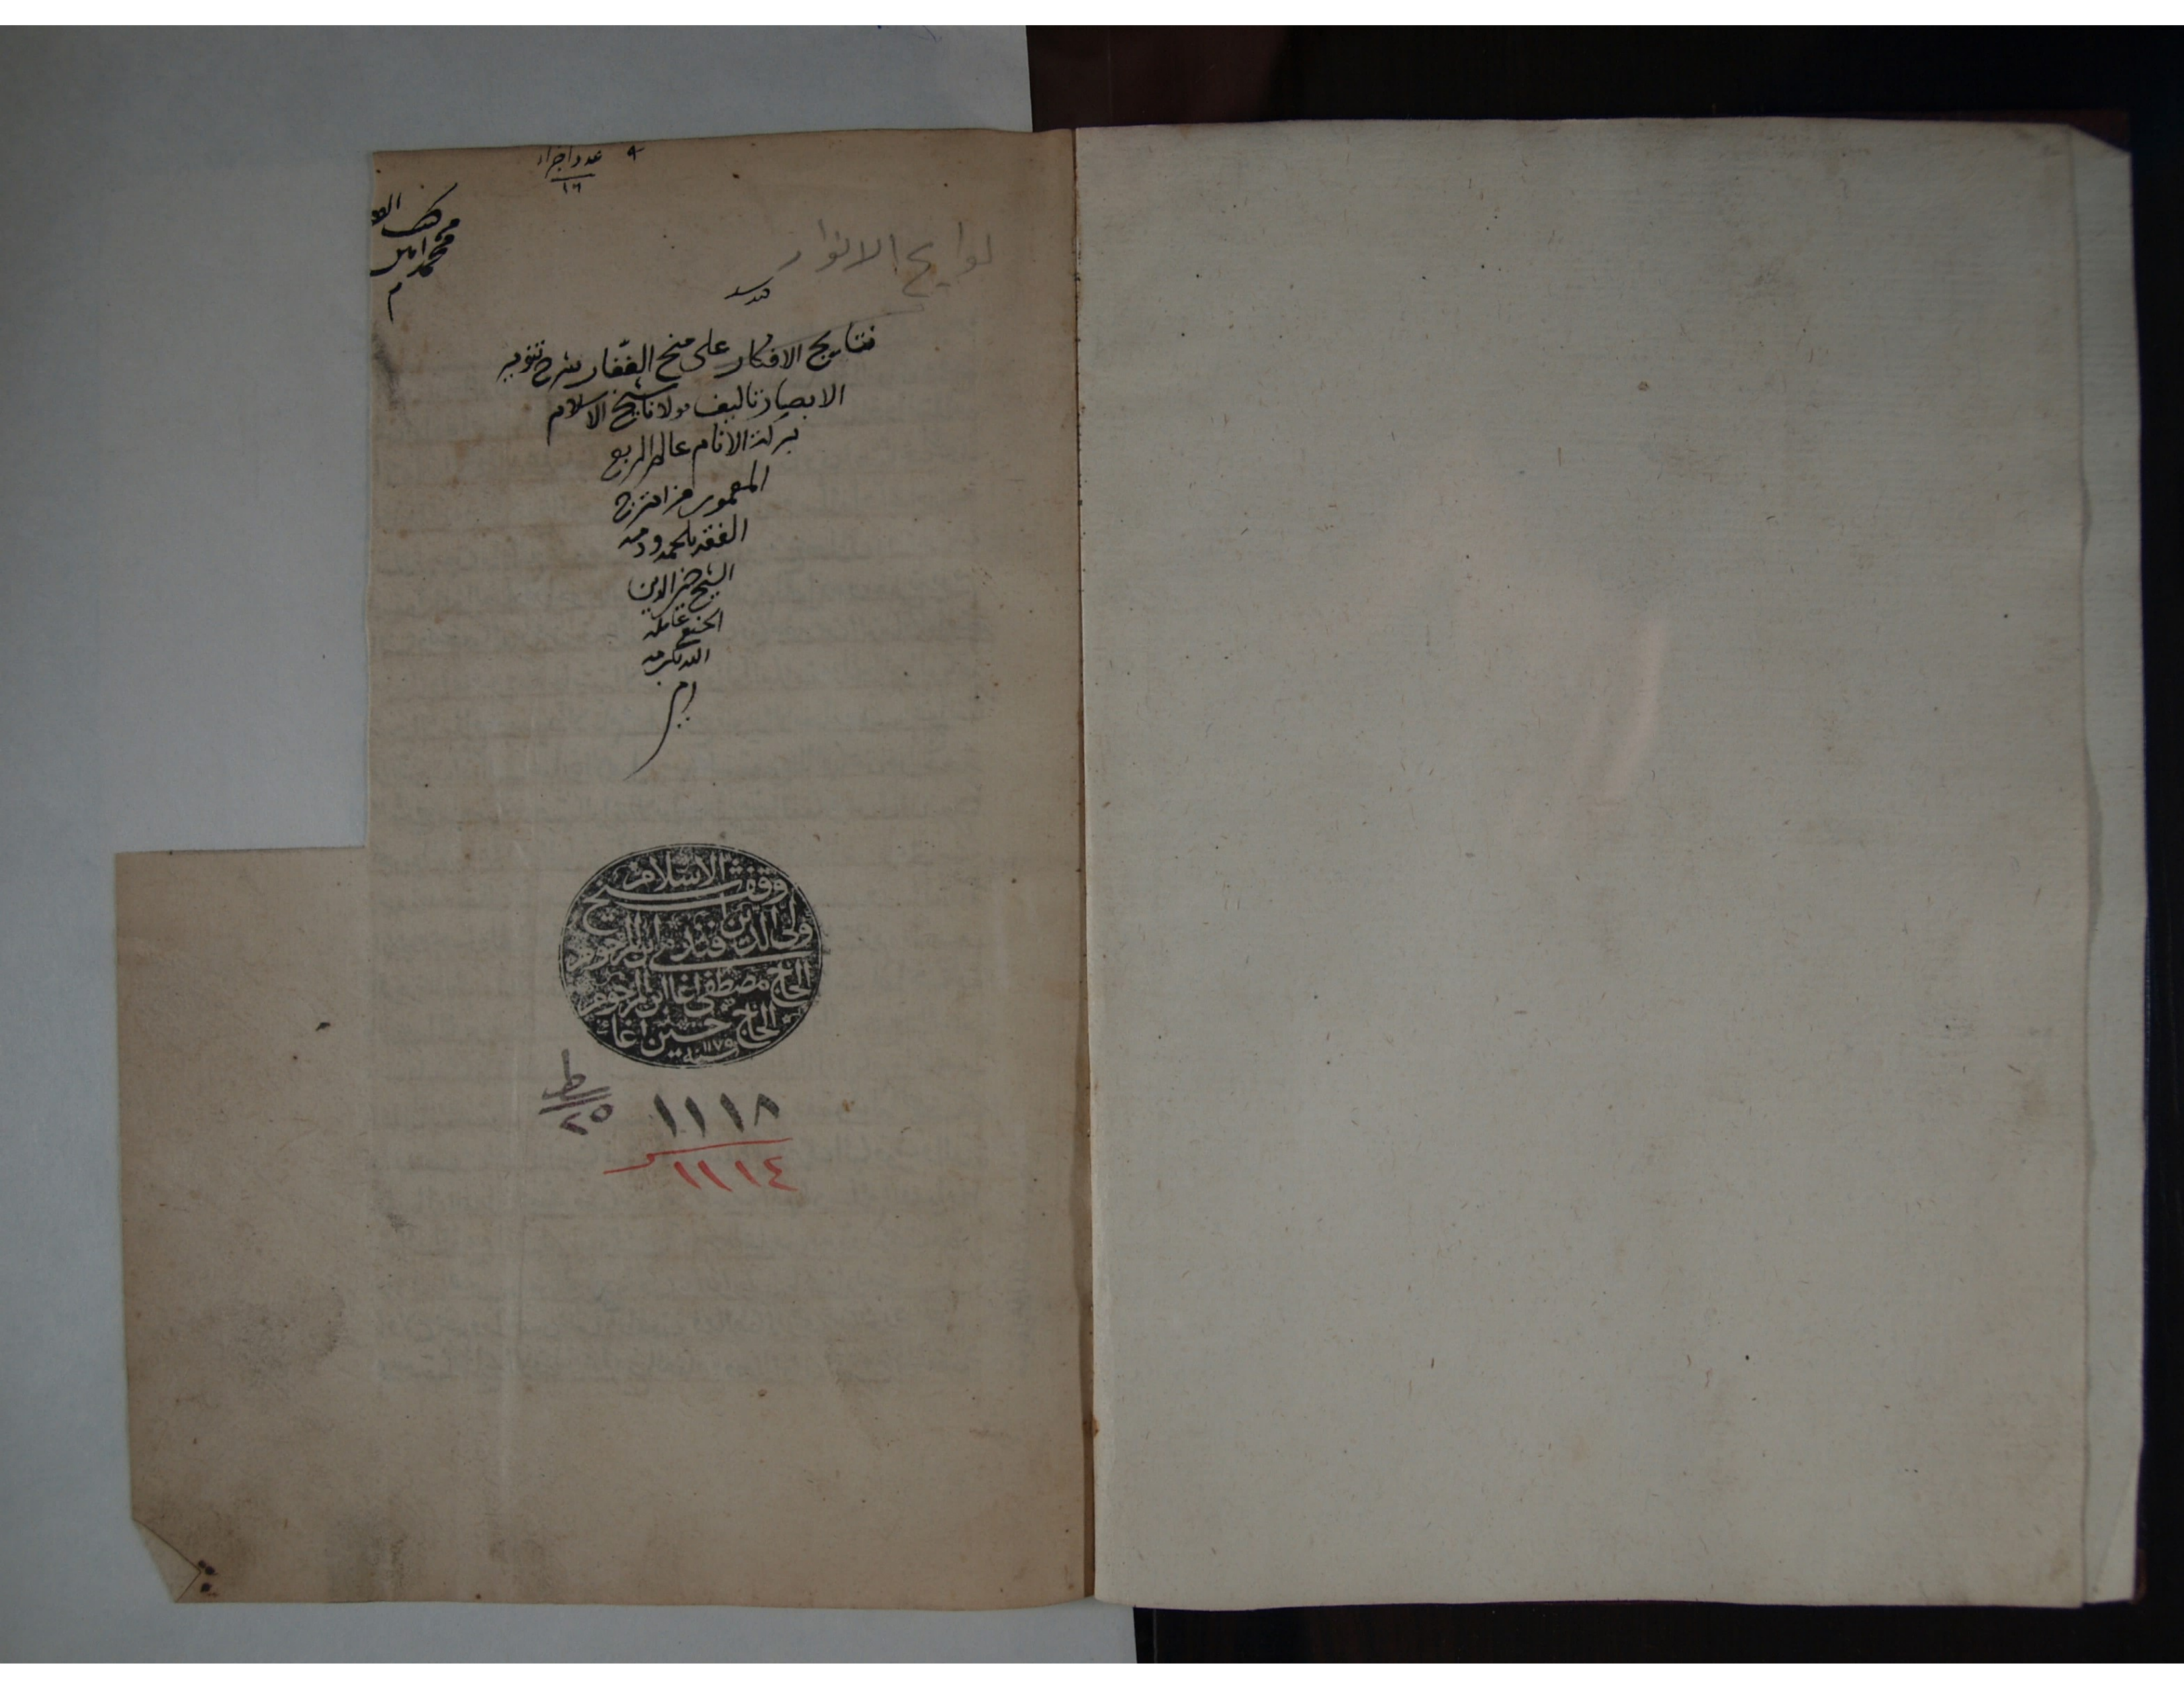 عدد اجزاء ٩
١٦
كتب
محمد امين
لوايح الانوار
نتايج الافكار على منح الغفّار شرح تنوير
الابصار تاليف مولانا شيخ الاسلام
بركة الانام عالم الربع
المعمور من امتزج
الفقه بلحمه ودمه
الشيخ خير الدين
الحنفي عامله
الله بكرمه
وقف شيخ الاسلام
ولي الدين افندي ابن المرحوم
الحاج مصطفى اغا ابن المرحوم
الحاج حسين اغا
سنة ١١٧٥
ط
٢٥
١١١٨
١١١٤